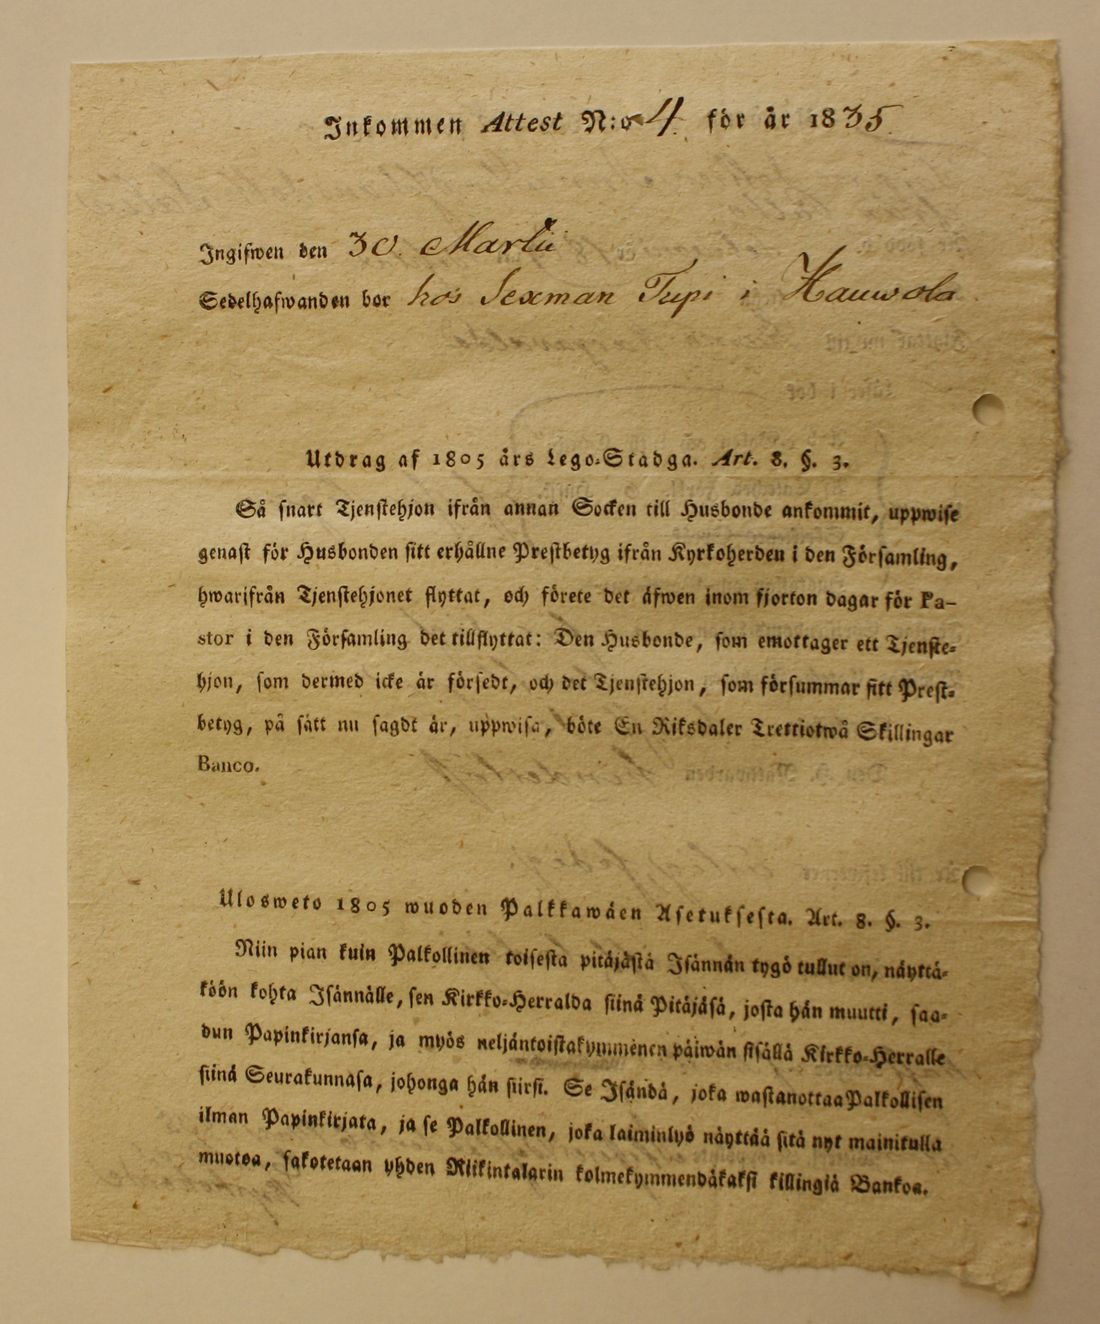 Inkommen Attest N:o 4 för år 1835
Ingifwen den 30 Martii
Sedelhafwanden bor hos Sexman Tupi i Hauwola
Utdrag af 1805 års Lego-Stadga. Art. 8. §. 3.
Så snart Tjenstehjon ifrån annan Socken till Husbonde ankommit, uppwise
genast för Husbonden sitt erhållne Prestbetyg ifrån Kyrkoherden i den Församling,
hwarifrån Tjenstehjonet flyttat, och förete det äfwen inom fjorton dagar för Pa-
stor i den Församling det tillflyttat: Den Husbonde, som emottager ett Tjenste-
hjon, som dermed icke är försedt, och det Tjenstehjon, som försummar sitt Prest-
betyg, på sätt nu sagdt är, uppwisa, böte En Riksdaler Trettiotwå Skillingar
Banco.
Ulosweto 1805 wuoden Palkkawäen Asetuksesta. Art. 8. §. 3.
Niin pian kuin Palkollinen toisesta pitäjästä Isännän tygö tullut on, näyttä-
köön kohta Isännälle, sen Kirkko-Herralda siinä Pitäjäsä, josta hän muutti, saa-
dun Papinkirjansa, ja myös neljäntoistakymmenen päiwän sisällä Kirkko-Herralle
siinä Seurakunnasa, johonga hän siirsi. Se Isändä, joka wastanottaa Palkollisen
ilman Papinkirjata, ja se Palkollinen, joka laiminlyö näyttää sitä nyt mainitulla
muotoa, sakotetaan yhden Riikintalarin kolmekymmendäkaksi killingiä Bankoa.